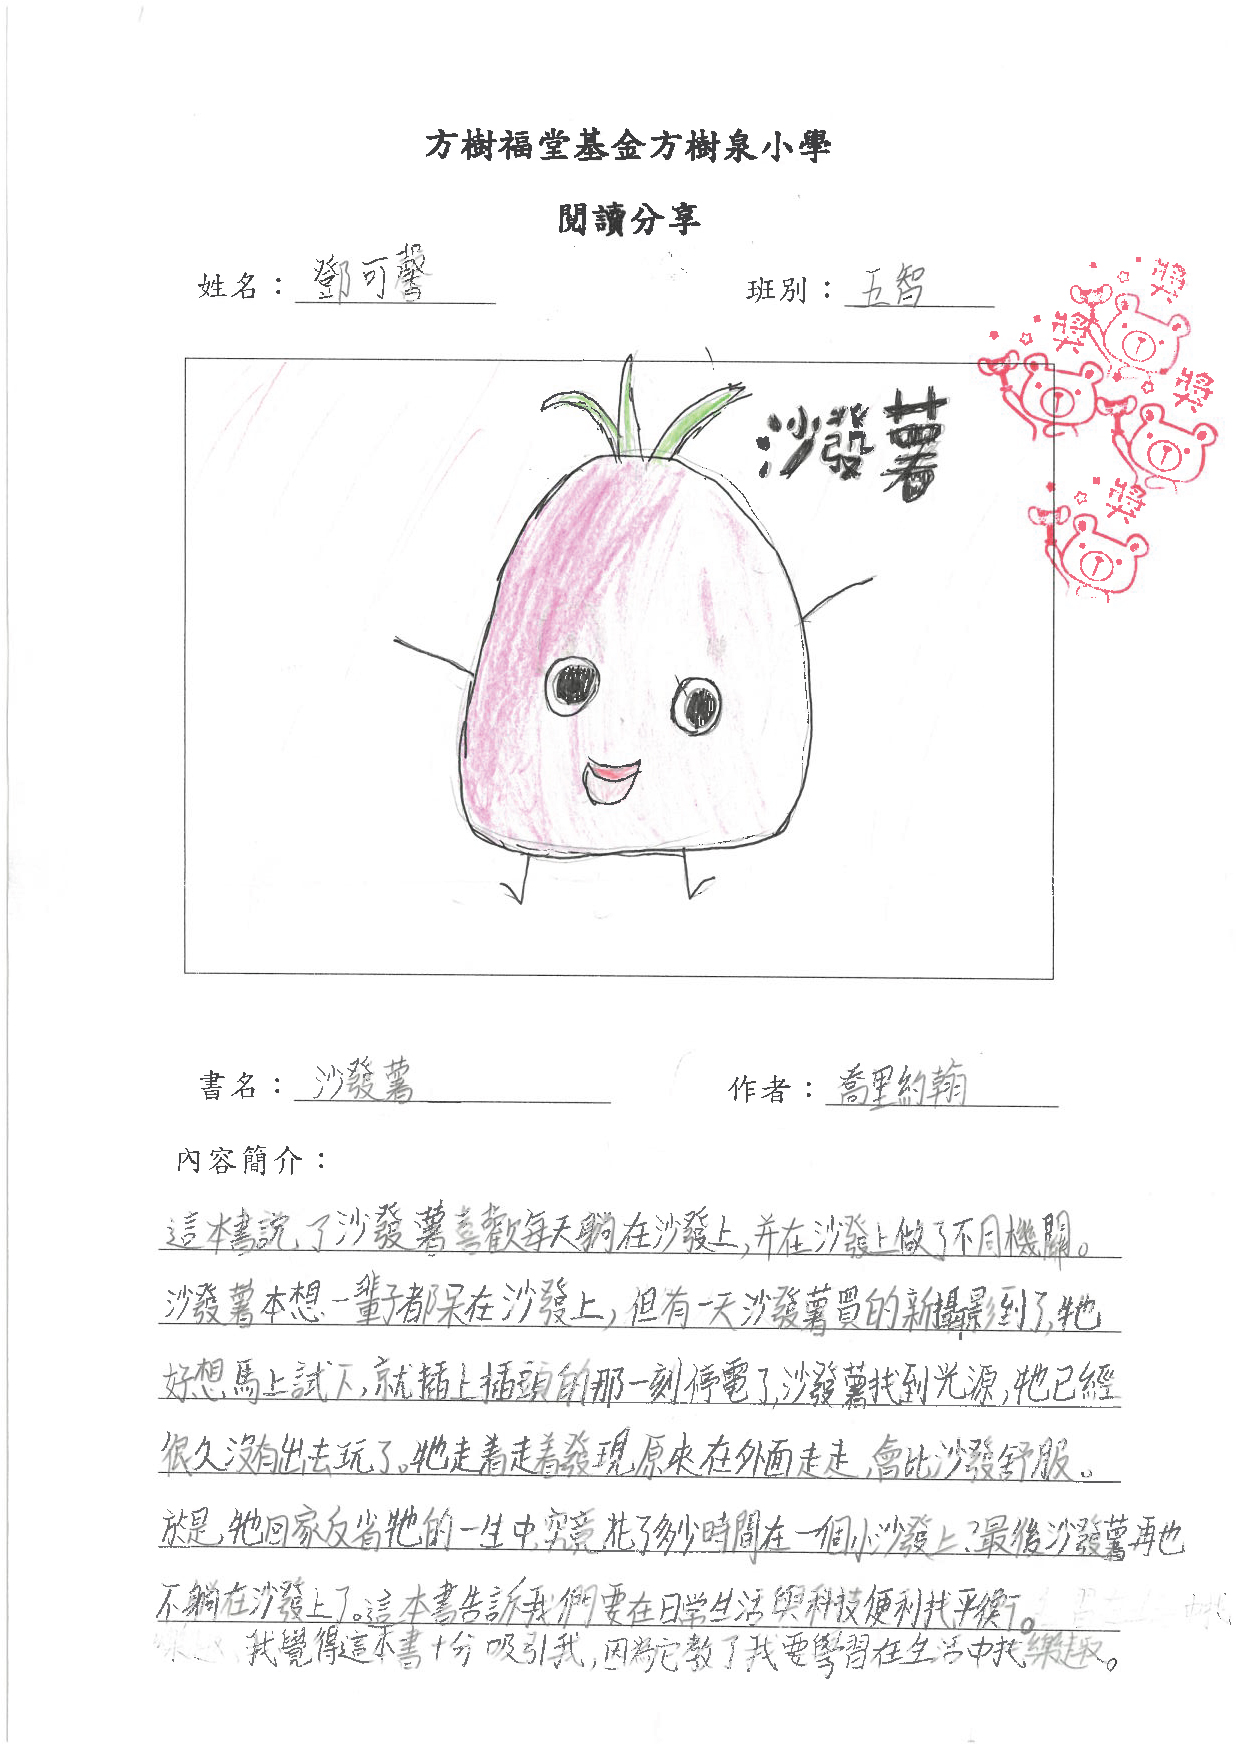 方樹福堂基金方樹泉小學
閱讀分享
姓名：鄧可馨 班別：五智
獎
獎
獎
獎
沙發薯
書名：沙發薯 作者：喬里約翰
內容簡介：
這本書說了沙發薯喜歡每天躺在沙發上,并在沙發上做了不同機關。
沙發薯本想一輩子都呆在沙發上,但有一天沙發薯買的新攝影到了,牠
好想馬上試下,就插上插頭的那一刻停電了,沙發薯找到光源,牠已經
很久沒有出去玩了。牠走着走着發現原來在外面走走,會比沙發舒服。
於是,牠回家反省牠的一生中究竟花了多少時間在一個小沙發上?最後沙發薯再也
不躺在沙發上了。這本書告訴我們要在日常生活與科技便利找平衡。
我覺得這本書十分吸引我,因為它教了我要學習在生活中找樂趣。